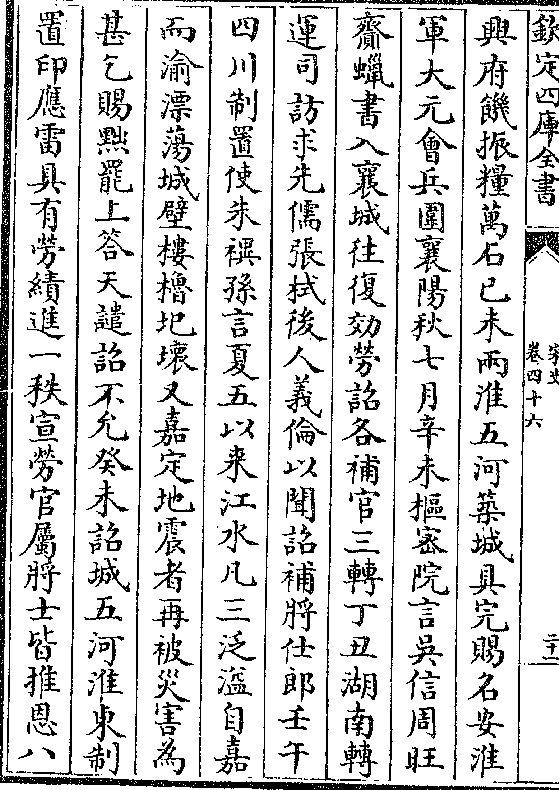 欽定四庫全書
宋史
卷四十六
二十一
興府饑振糧萬石己未兩淮五河築城具完賜名安淮
軍大元會兵圍襄陽秋七月辛未樞密院言吳信周旺
齎蠟書入襄城往復効勞詔各補官三轉丁丑湖南轉
運司訪求先儒張栻後人義倫以聞詔補將仕郎壬午
四川制置使朱禩孫言夏五以來江水凡三泛溢自嘉
而渝漂蕩城壁樓櫓圯壞又嘉定地震者再被災害為
甚乞賜黜罷上答天譴詔不允癸未詔城五河淮東制
置印應雷具有勞績進一秩宣勞官屬將士皆推恩八